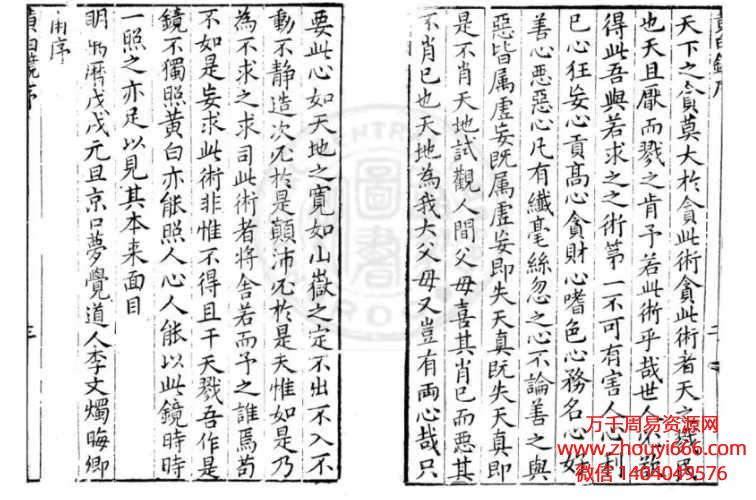 黄白鏡序
二
天下之貪莫大於貪此術貪此術者天之戮民
也天且厭而戮之肯予若此術乎哉世人不能
得此吾與若求之之術第一不可有害人心利
已心狂妄心貢高心貪財心嗜色心務名心妬
善心惡惡心凡有纖毫絲忽之心不論善之與
惡皆属虛妄既属虛妄即失天真既失天真即
是不肖天地試觀人間父母喜其肖已而惡其
不肖已也天地為我大父母又豈有兩心哉只
要此心如天地之寬如山嶽之定不出不入不
動不静造次必於是顛沛必於是夫惟如是乃
為不求之求司此術者將舍若而予之誰焉苟
不如是妄求此術非惟不得且干天戮吾作是
鏡不獨照黄白亦能照人心人能以此鏡時時
一照之亦足以見其本来面目
明萬曆戊戌元旦京口夢覺道人李文燭晦卿
甫序
黄白鏡序
三
万千周易资源网
www.zhouyi666.com
微信 1404049576